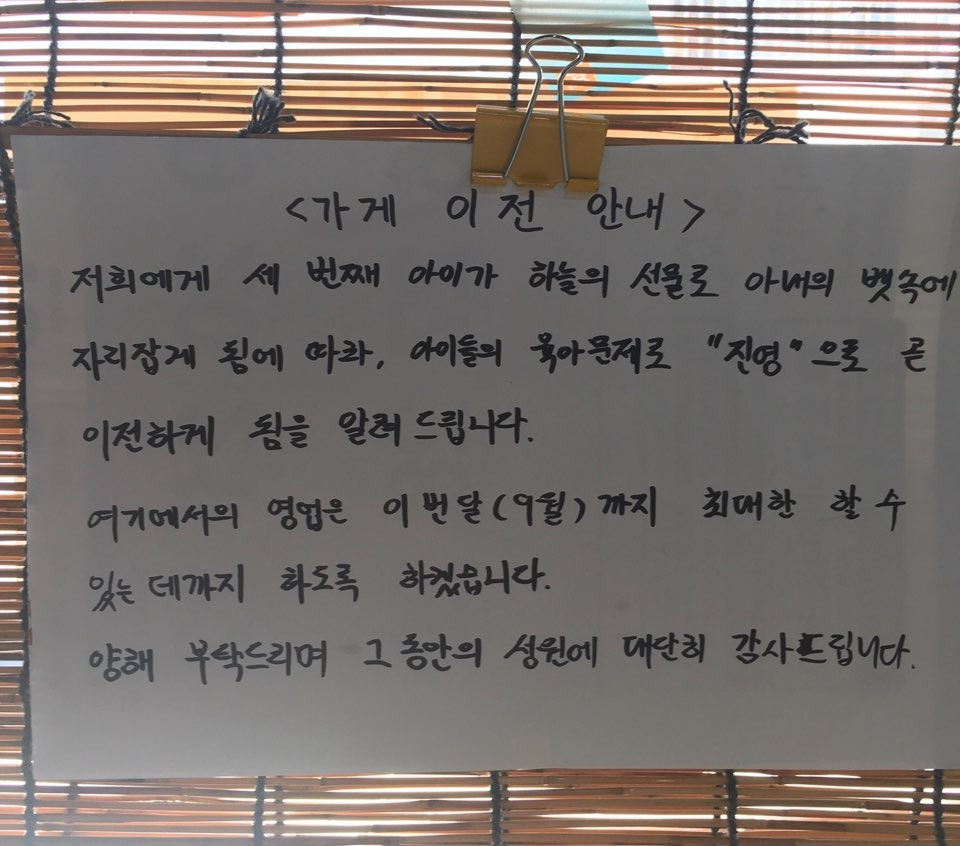 <가게 이전 안내>
저희에게 세 번째 아이가 하늘의 선물로 아내의 뱃속에
자리잡게 됨에 따라, 아이들의 육아문제로 "진영"으로 곧
이전하게 됨을 알려드립니다.
여기에서의 영업은 이번달(9월)까지 최대한 할 수
있는데까지 하도록 하겠습니다.
양해 부탁드리며 그동안의 성원에 대단히 감사드립니다.